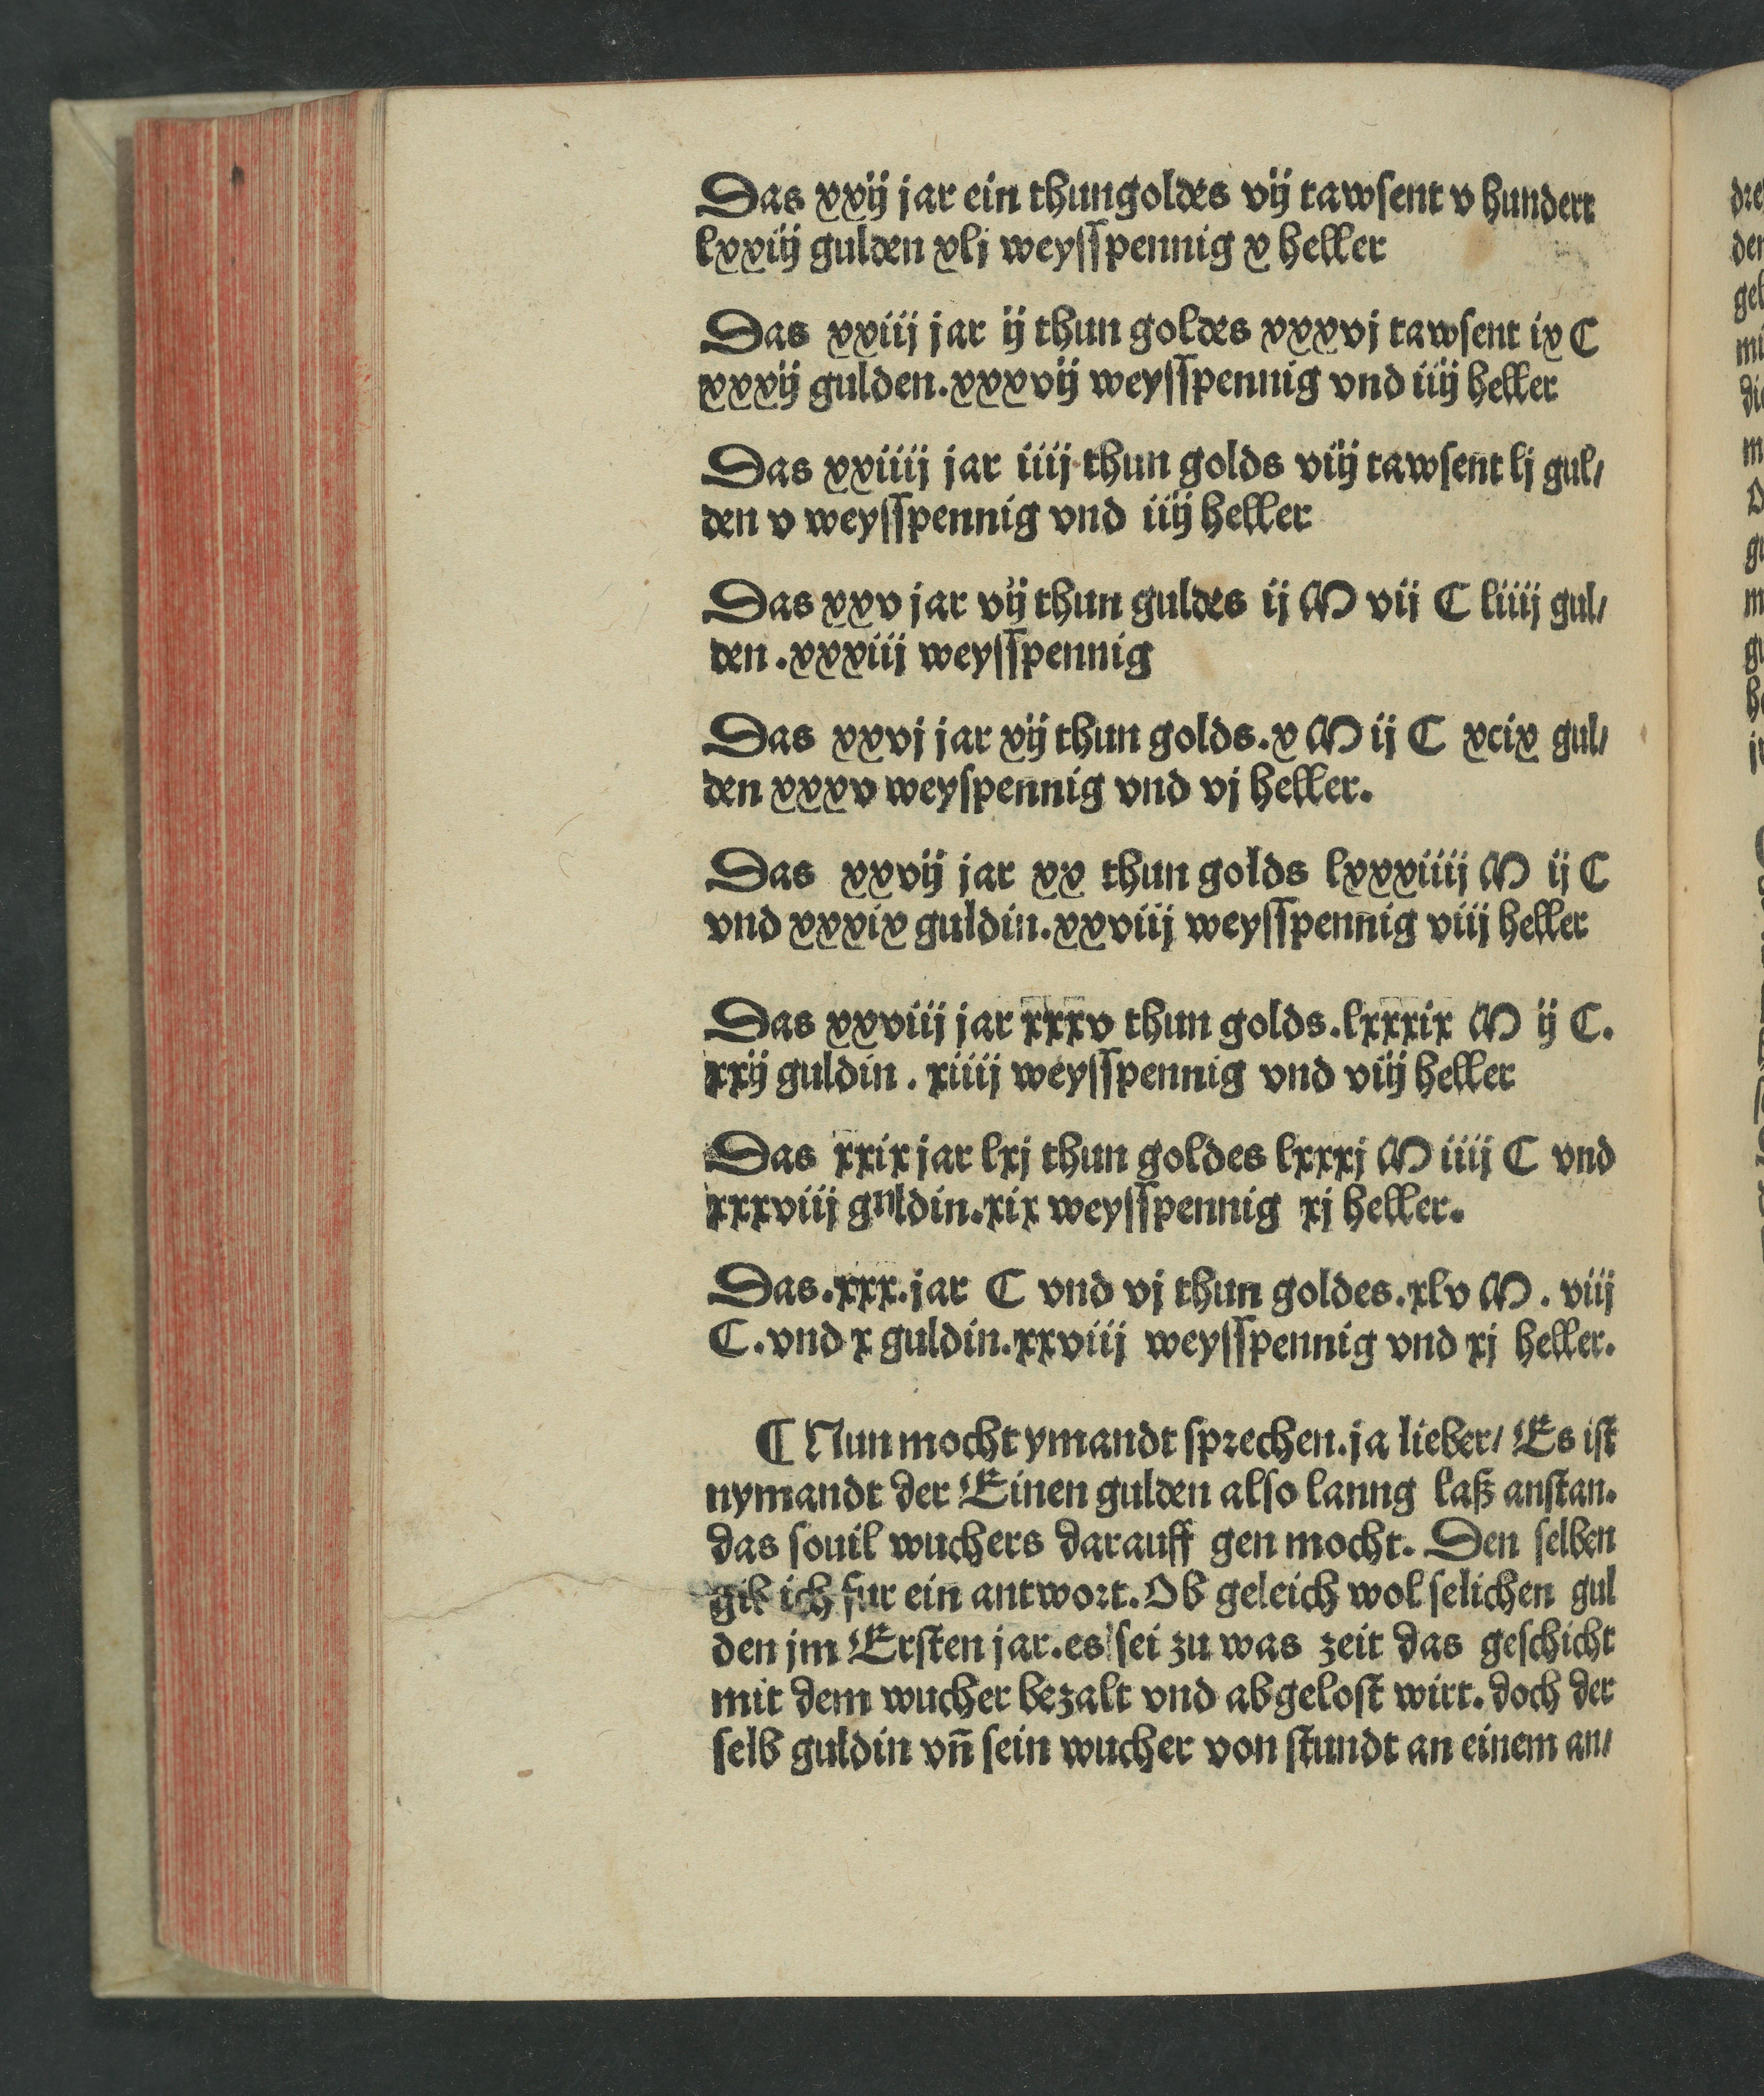 Das xxij jar ein thungoldes vij tawſent v hundert
lxxiij gulden xlj weyſſpennig x heller
Das xxiij jar ij thun goldes xxxvj tawſent ix C
xxxij gulden.xxxvij weyſſpennig vnd iiij heller
Das xxiiij jar iiij thun golds viij tawſent lj gul/
den v weyſſpennig vnd iiij heller
Das xxv jar vij thun guldes ij M vij C liiij gul/
den .xxxiij weyſſpennig
Das xxvj jar xij thun golds.x M ij C xcix gul/
den xxxv weyſpennig vnd vj heller.
Das xxvij jar xx thun golds lxxxiiij M ij C
vnd xxxix guldin.xxviij weyſſpennig viij heller
Das xxviij jar xxxv thun golds.lxxxix M ij C.
xxij guldin . xiiij weyſſpennig vnd viij heller
Das xxix jar lxj thun goldes lxxxj M iiij C vnd
xxxviij gnldin.xix weyſſpennig xj heller.
Das.xxx.jar C vnd vj thun goldes.xlv M . viij
C.vnd x guldin.xxviij weyſſpennig vnd xj heller.
¶ Nun mocht ymandt ſprechen.ja lieber/ Es iſt
nymandt der Einen gulden alſo lanng laß anſtan.
das ſouil wuchers darauff gen mocht. Den ſelben
gib ich fur ein antwort. Ob geleich wol ſelichen gul
den jm Erſten jar.es ſei zu was zeit das geſchicht
mit dem wucher bezalt vnd abgeloſt wirt. doch der
ſelb guldin vñ ſein wucher von ſtundt an einem an/